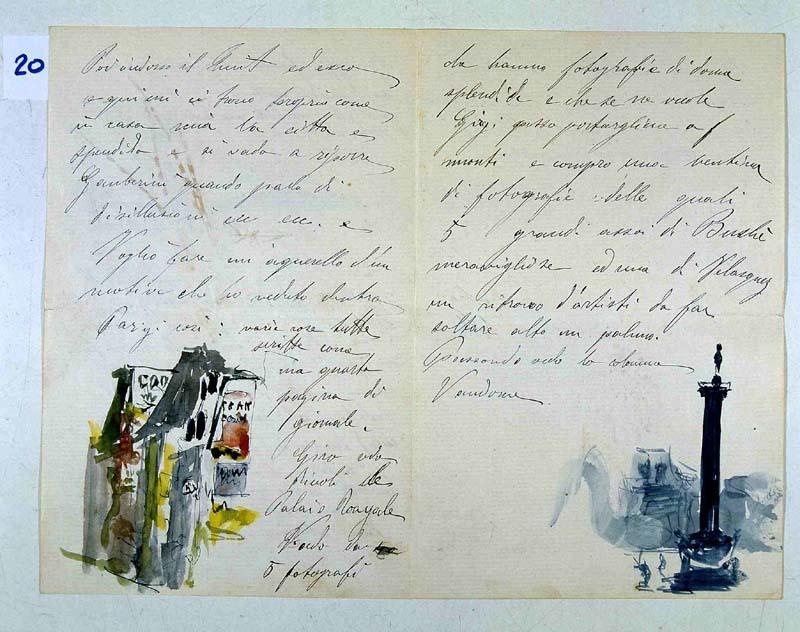 20
Poi indosso il ed esco
e quimi ci trovo proprio come
in casa mia la città e
spendida e si vada a riporre
Gamberini quando parla di
disillusioni ecc ecc. e
Voglio fare un aquerello d'un
motivo che ho veduto dentro
Parigi così: varie cose tutte
scritte come
una quarta
pagina di
giornale.
Giro
Rivoli
Palais Rouyale
Vado da
5 fotografi
da hanno fotografie di donna
splendide e che se ne vuole
Gigi posso portargliene a
monti e compro una ventina
di fotografie: delle quali
5 grandi assai di
meravigliose ed una di Velasquez
un ritrovo d'artisti da far
saltare alto un palmo.
Passando vedo la colonna
Vandome